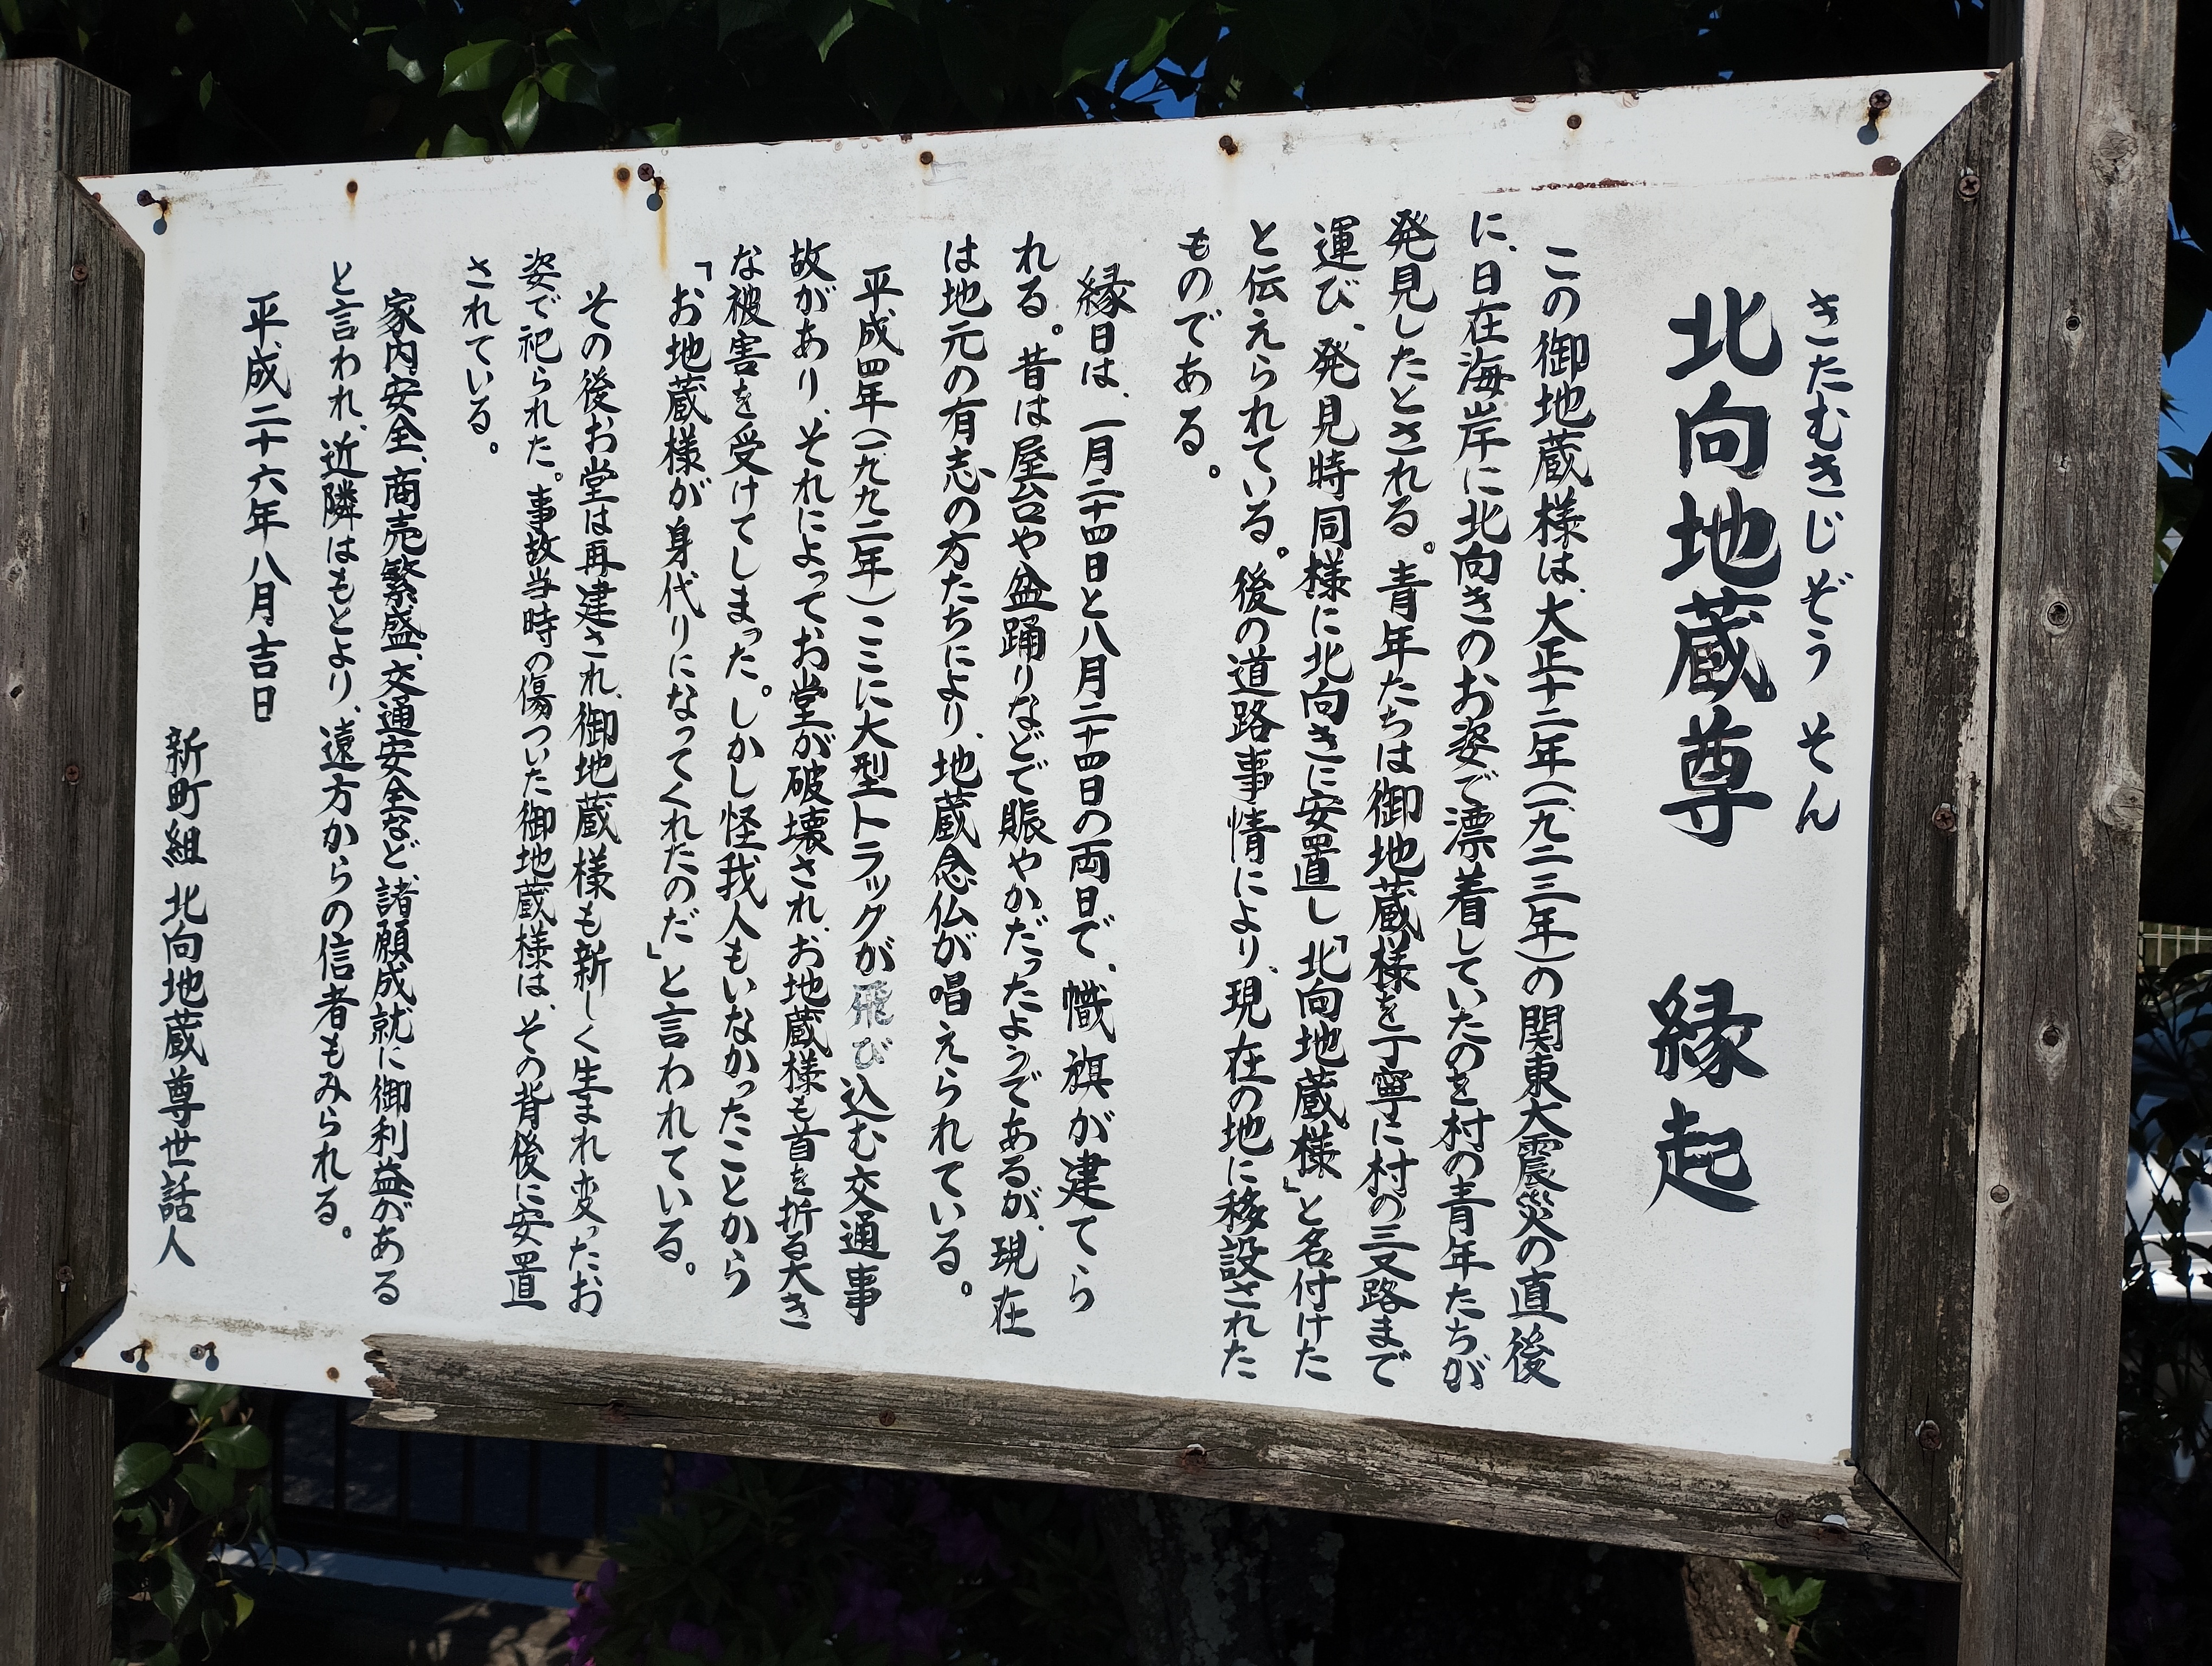 きたむきじぞう そん
北向地蔵尊 縁起
この御地蔵様は、大正十二年(一九二三年)の関東大震災の直後
に、日在海岸に北向きのお姿で漂着していたのを村の青年たちが
発見したとされる。青年たちは御地蔵様を丁寧に村の三叉路まで
運び、発見時同様に北向きに安置し「北向地蔵様」と名付けた
と伝えられている。後の道路事情により、現在の地に移設された
ものである。
縁日は、一月二十四日と八月二十四日の両日で、幟旗が建てら
れる。昔は屋台や盆踊りなどで賑やかだったようであるが、現在
は地元の有志の方たちにより、地蔵念仏が唱えられている。
平成四年(一九九二年)ここに大型トラックが飛び込む交通事
故があり、それによってお堂が破壊され、お地蔵様も首を折る大き
な被害を受けてしまった。しかし怪我人もいなかったことから
「お地蔵様が身代りになってくれたのだ」と言われている。
その後お堂は再建され、御地蔵様も新しく生まれ変ったお
姿で祀られた。事故当時の傷ついた御地蔵様は、その背後に安置
されている。
家内安全、商売繁盛、交通安全など、諸願成就に御利益がある
と言われ、近隣はもとより、遠方からの信者もみられる。
平成二十六年八月吉日
新町組 北向地蔵尊世話人